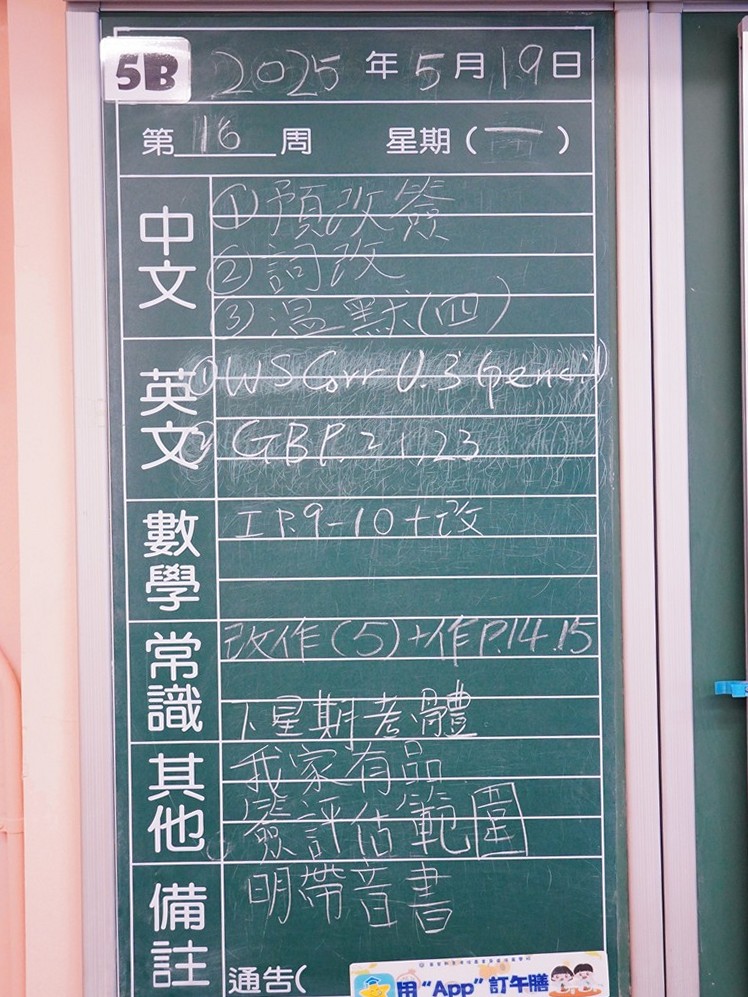 5B 2025年5月19日
第16周 星期(一)
中文
①預改簽
②詞改
③溫默(四)
英文
①WS Corr U.3 (pencil)
② GB P.2
數學
I P.9-10+改
常識
改作(5)+作P.14.15
下星期考體
其他
我家有品
簽評估範圍
備註
明帶音書
通告(
用 "App" 訂午膳